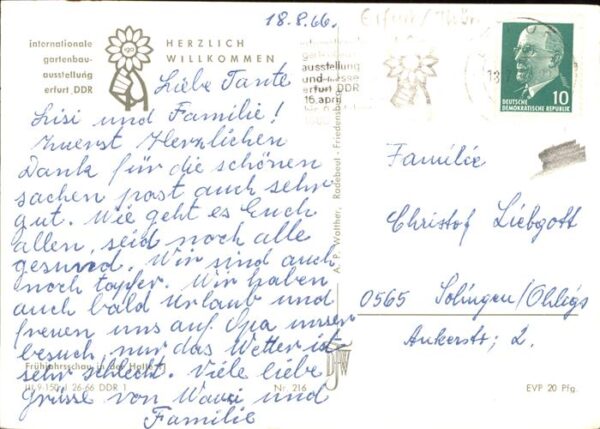 18.8.66.
Erfurt/Thür
internationale
gartenbau-
ausstellung
erfurt DDR
iga
HERZLICH
WILLKOMMEN
gartenbau
ausstellung
und-messe
erfurt DDR
16. april
DEUTSCHE
DEMOKRATISCHE REPUBLIK
10
Liebe Tante
Lisi und Familie!
Zuerst Herzlichen
Dank für die schönen
sachen past auch sehr
gut. Wie geht es Euch
allen, seid noch alle
gesund. Wir sind auch
noch tapfer. Wir haben
auch bald Urlaub und
freuen uns auf Opa unser
besuch, nur das Wetter ist
sehr schlecht. Viele liebe
Grüsse von und
Familie
Frühjahrsschau in der Halle
III 9-150 J 26-66 DDR 1
Nr. 216
A. P. Walther, Radebeul - Friedens
Familie
Christof Liebgott
0565 Solingen/Ohligs
Ankerstr; 2.
EVP 20 Pfg.